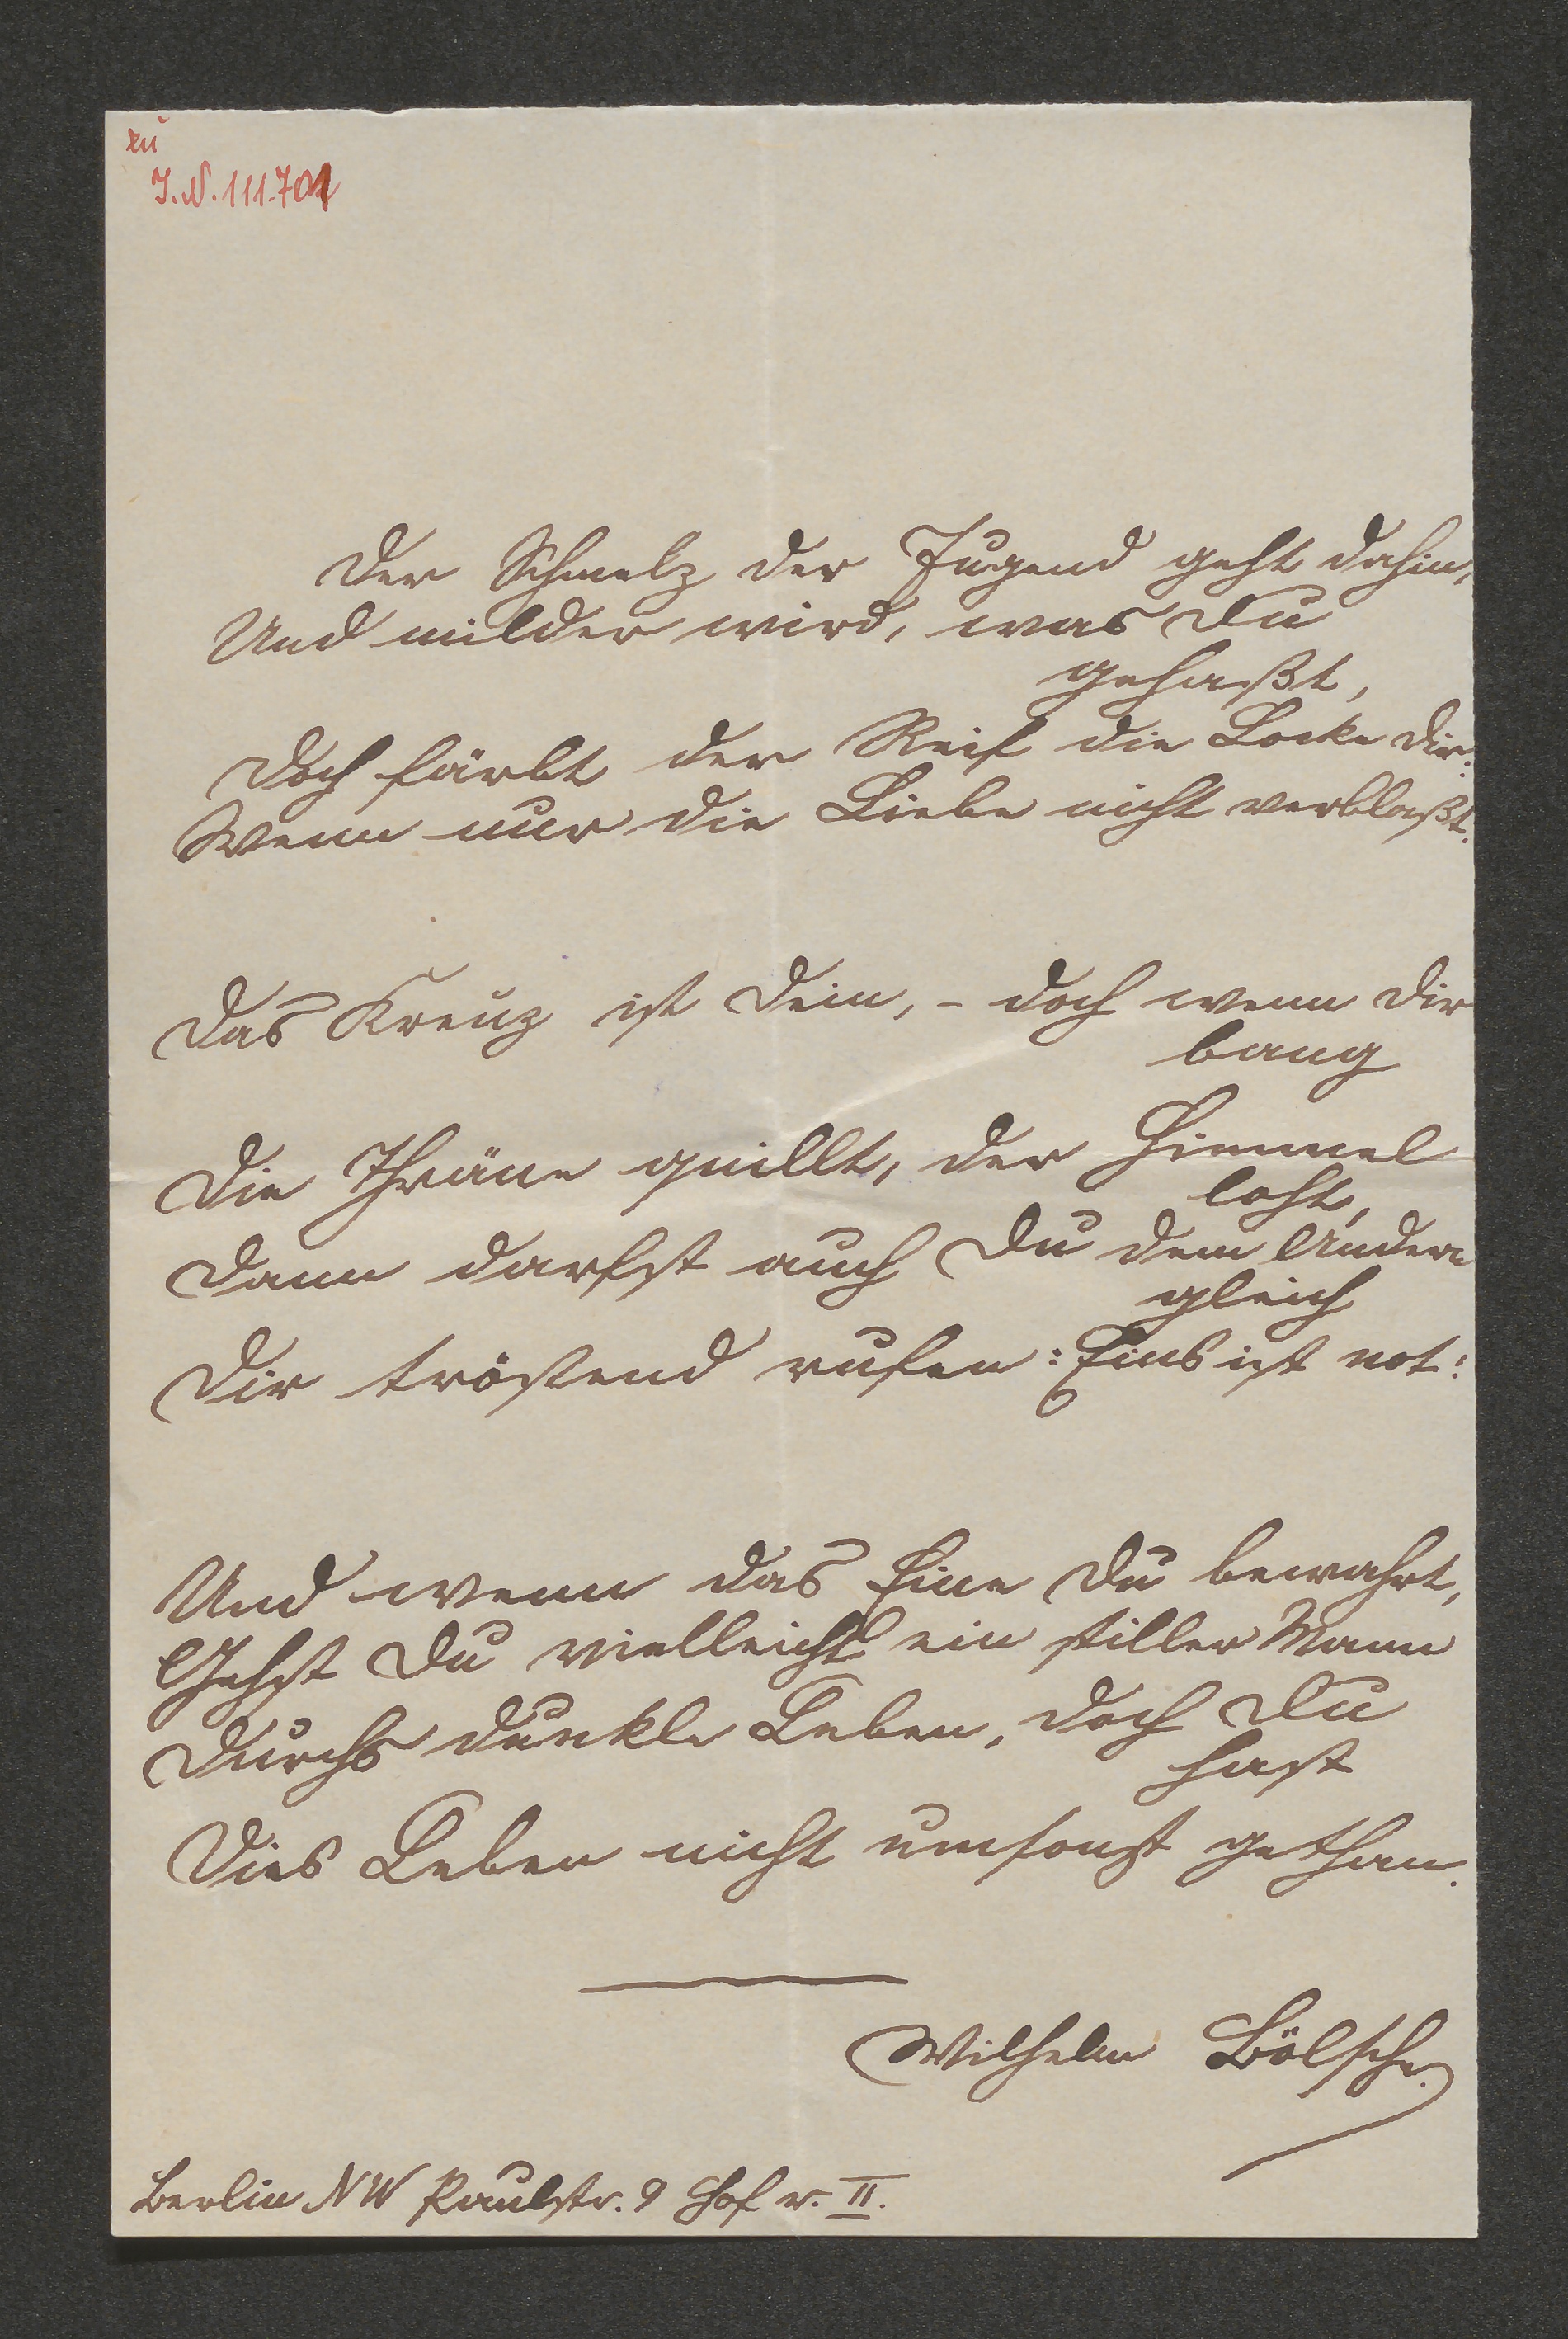 zu
I.N. 111.701
Der Schmelz der Jugend geht dahin,
Und milder wird, was Du
gehaßt,
Doch färbt der Reif die Locke Dir:
Wenn nur die Liebe nicht verblaßt.
Das Kreuz ist Dein, – doch wenn Dir
bang
Die Thräne quillt, der Himmel
loht,
Dann darfst auch Du dem Andern
gleich
Dir tröstend rufen: Eins ist not:
Und wenn das Eine Du bewahrt,
Gehst Du vielleicht ein stiller Mann
Durchs dunkle Leben, doch Du
hast
Dies Leben nicht umsonst gethan.
Wilhelm Bölsche.
Berlin NW Paulstr. 9 Hof r. II.